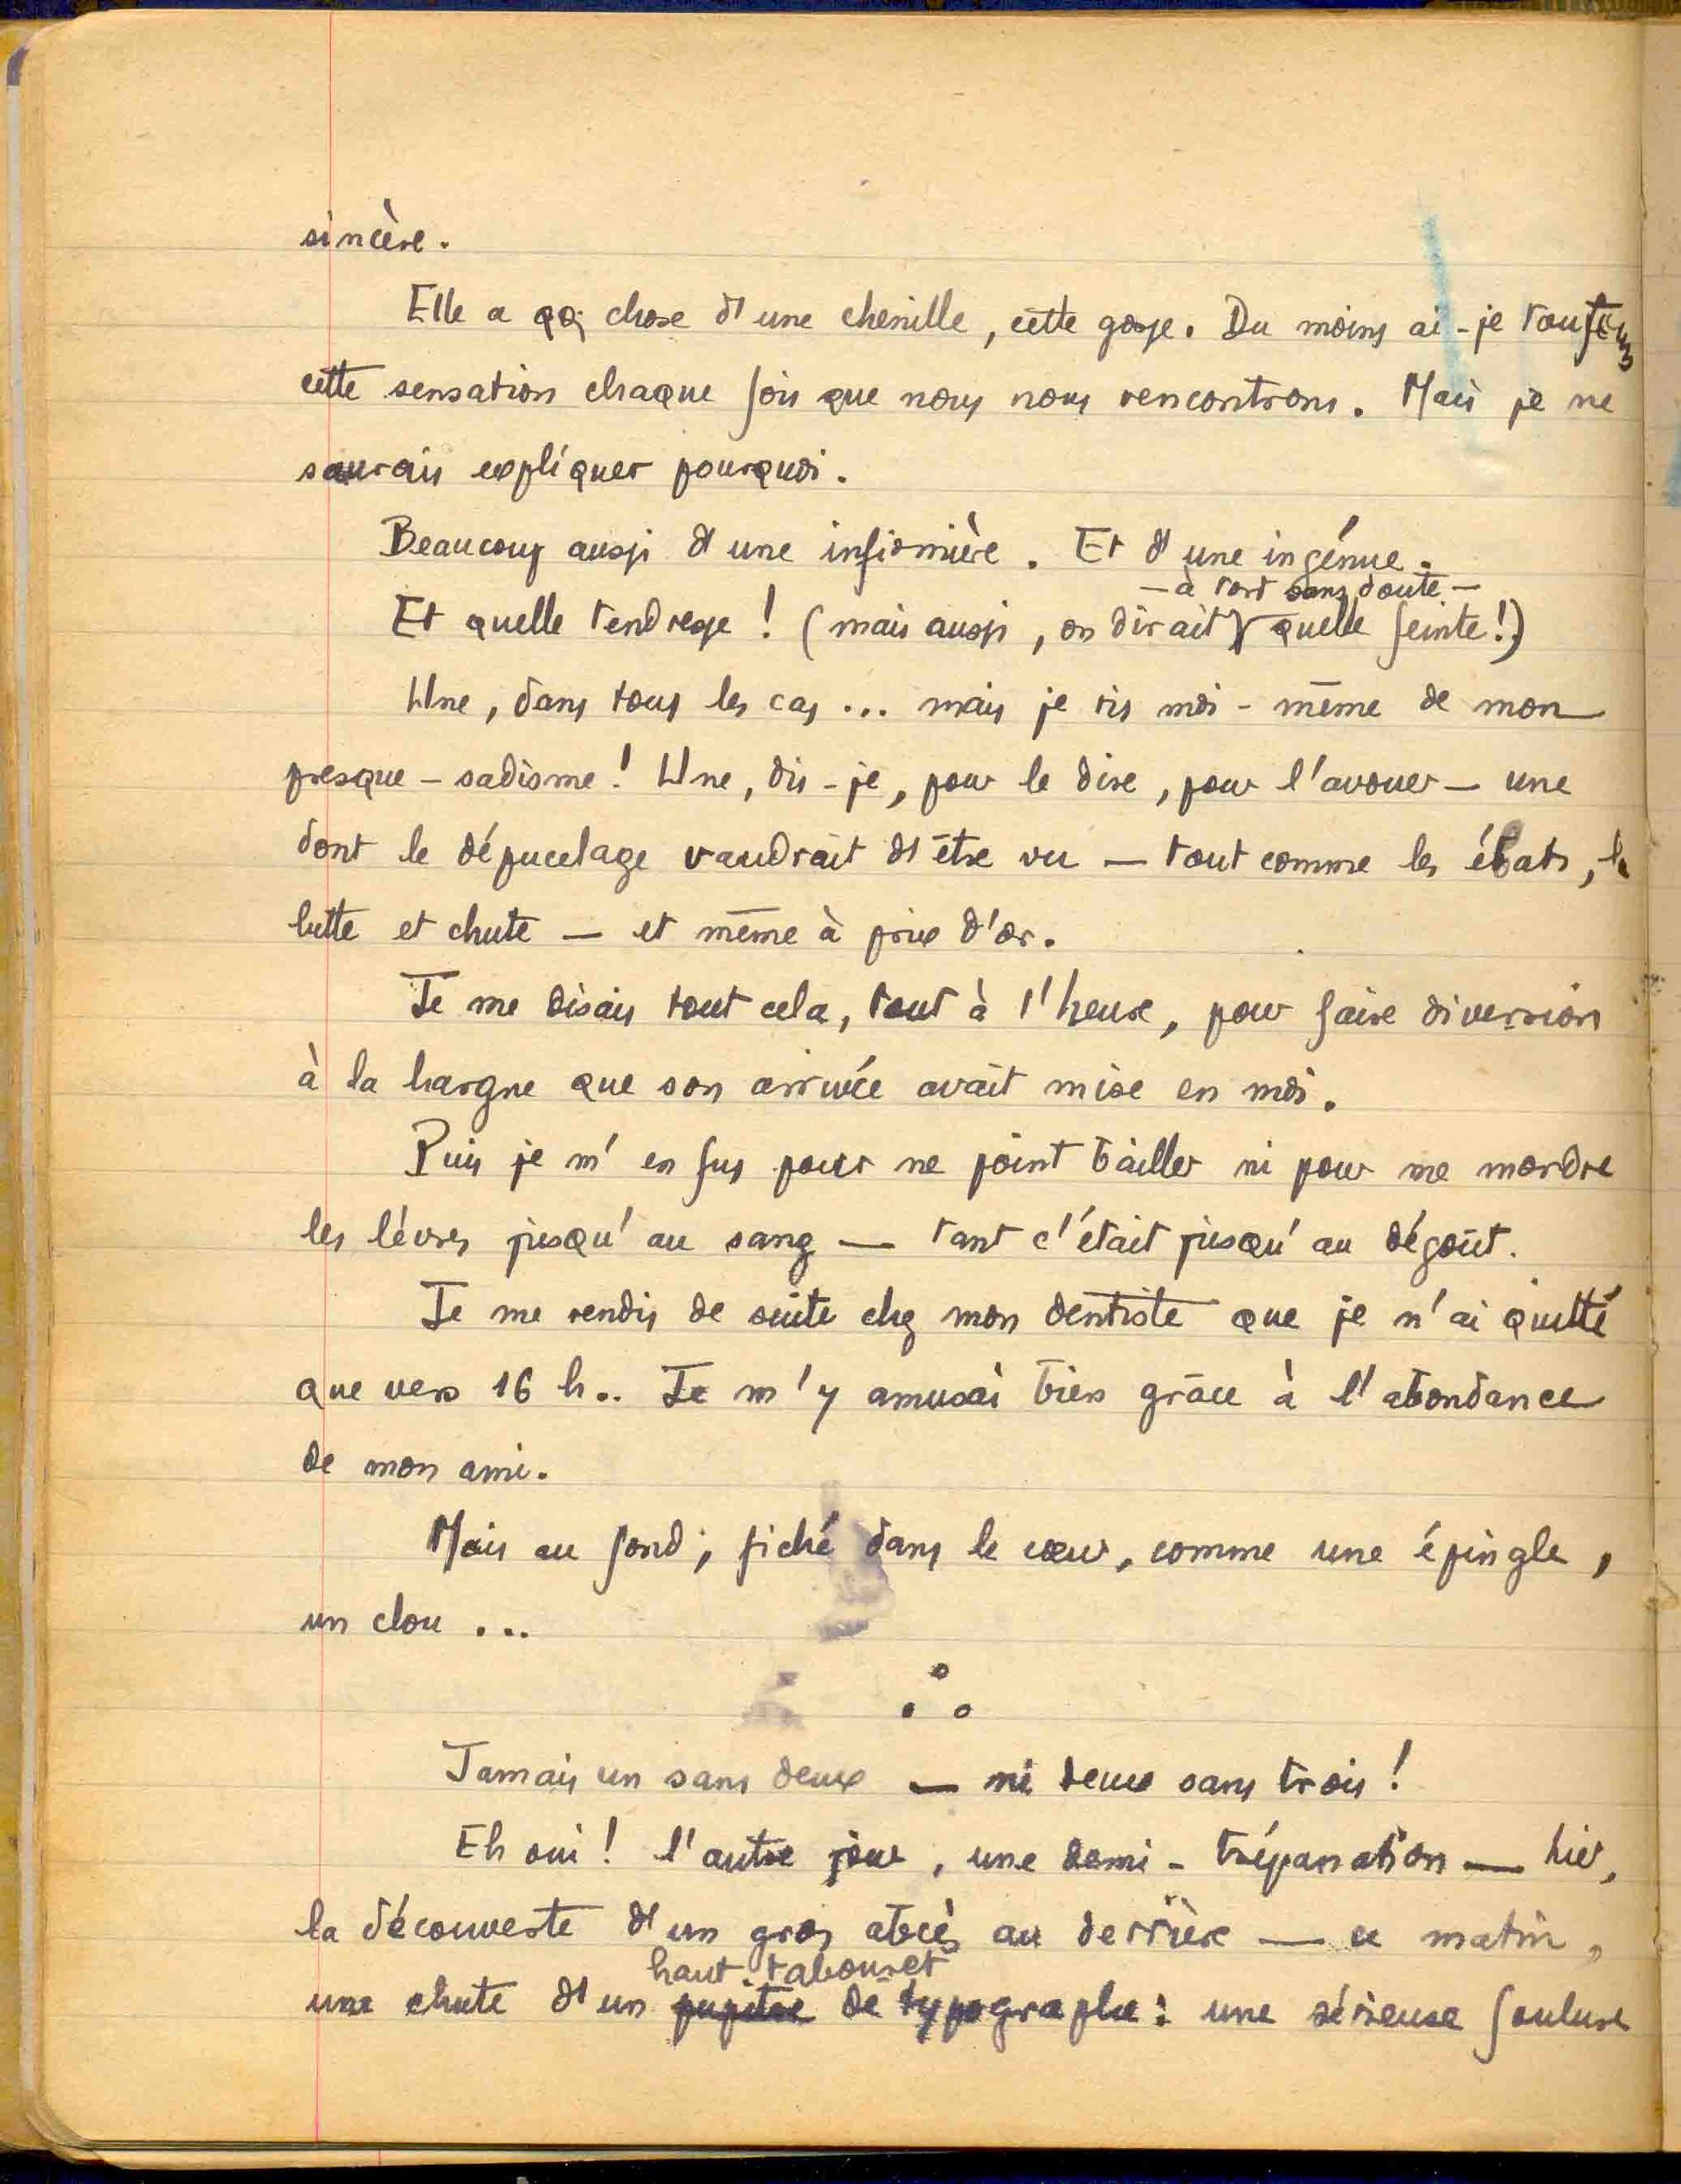 sincère.
Elle a qq. chose d'une chenille, cette gosse. Du moins ai-je toujours
cette sensation chaque fois que nous nous rencontrons. Mais je ne
saurais expliquer pourquoi.
Beaucoup aussi d'une infirmière. Et d'une ingénue.
— à tort sans doute —
Et quelle tendresse ! (mais aussi, on dirait quelle feinte !)
Une, dans tous les cas ... mais je ris moi-même de mon
presque-sadisme ! Une, dis-je, pour le dire, pour l'avouer — une
dont le dépucelage vaudrait d'être vu — tout comme les ébats, la
lutte et chute — et même à prix d'or.
Je me disais tout cela, tout à l'heure, pour faire diversion
à la hargne que son arrivée avait mise en moi.
Puis je m'en fus pour ne point bâiller ni pour me mordre
les lèvres jusqu'au sang — tant c'était jusqu'au dégoût.
Je me rendis de suite chez mon dentiste que je n'ai quitté
que vers 16 h.. Je m'y amusai bien grâce à l'abondance
de mon ami.
Mais au fond, fiché dans le cœur, comme une épingle,
un clou ...
Jamais un sans deux — ni deux sans trois !
Eh oui ! l'autre jour, une demi-trépanation — hier,
la découverte d'un gros abcès au derrière — ce matin,
haut tabouret
une chute d'un pupitre de typographe : une sérieuse foulure